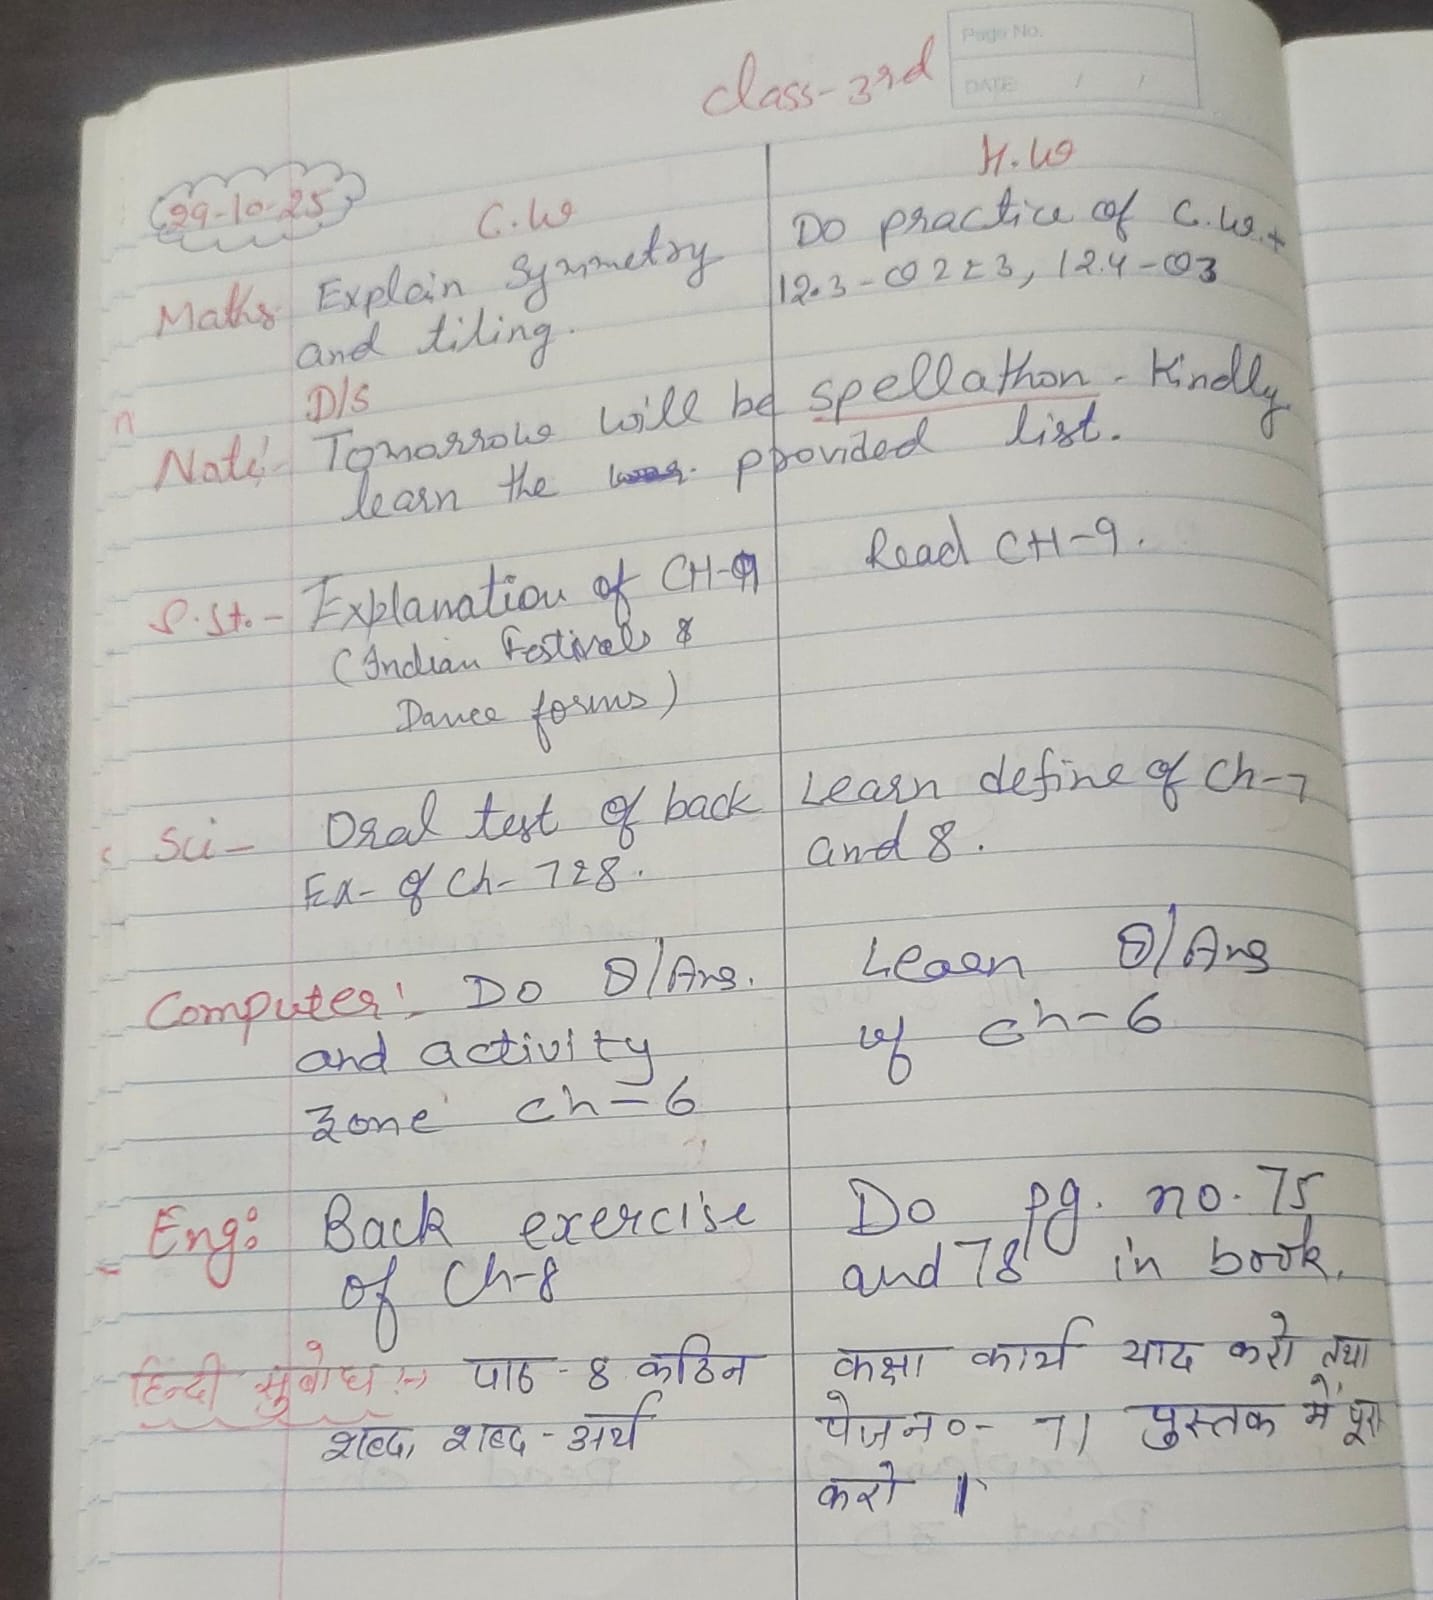 Page No.
DATE / /
Class-3rd
29-10-25
C.W
H.W
Maths Explain Symmetry
and tiling.
Do practice of C.W. +
12.3 - Q2 & 3, 12.4 - Q3
D/S
Note:- Tomorrow will be spellathon. Kindly
learn the provided list.
S.St.- Explanation of CH-9
(Indian Festivals &
Dance forms)
Read CH-9.
Sci- Oral test of back
Ex- of Ch- 7 & 8.
Learn define of Ch-7
and 8.
Computer: Do Q/Ans.
and activity
zone ch-6
Learn Q/Ans
of ch-6
Eng: Back exercise
of Ch-8
Do pg. no. 75
and 78 in book.
हिन्दी सुबोध :- पाठ - 8 कठिन
शब्द, शब्द - अर्थ
कक्षा कार्य याद करो तथा
पेज न०- 71 पुस्तक में पूरा
करो ।